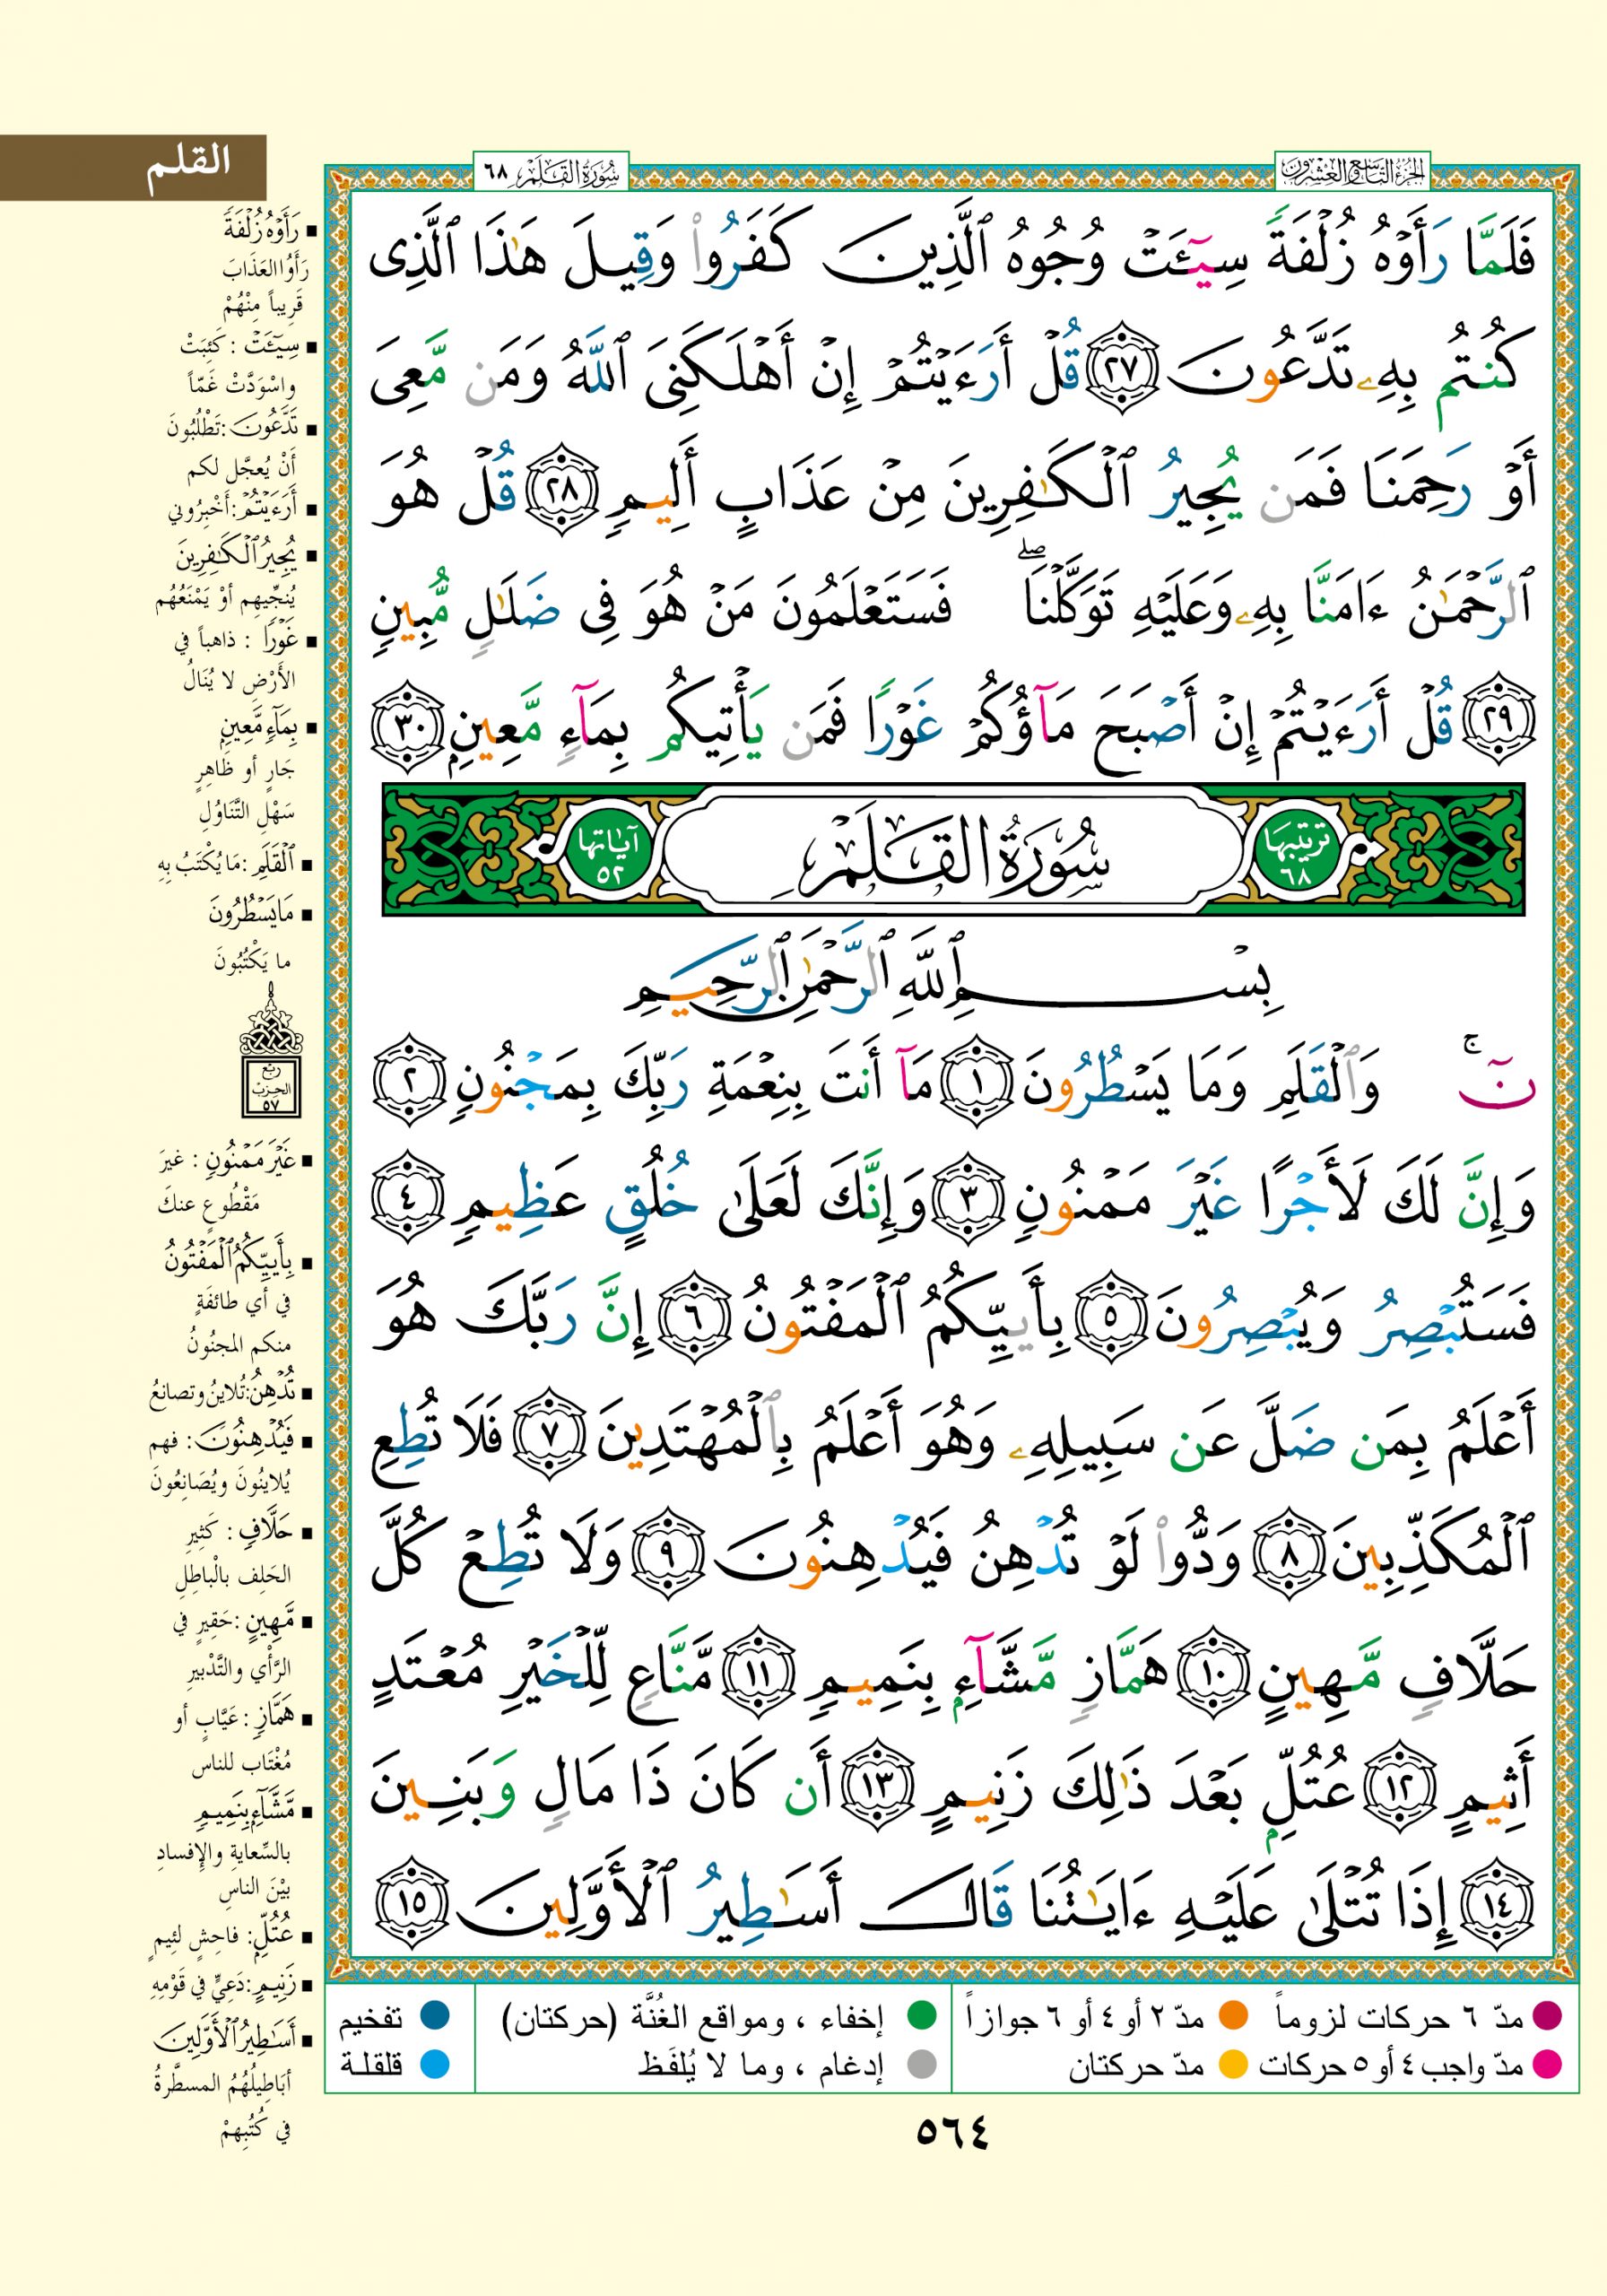 القلم
الجزء التاسع والعشرون
سورة القلم ٦٨
فَلَمَّا رَأَوْهُ زُلْفَةً سِيٓـَٔتْ وُجُوهُ ٱلَّذِينَ كَفَرُوا۟ وَقِيلَ هَٰذَا ٱلَّذِى
كُنتُم بِهِۦ تَدَّعُونَ ٢٧ قُلْ أَرَءَيْتُمْ إِنْ أَهْلَكَنِىَ ٱللَّهُ وَمَن مَّعِىَ
أَوْ رَحِمَنَا فَمَن يُجِيرُ ٱلْكَٰفِرِينَ مِنْ عَذَابٍ أَلِيمٍ ٢٨ قُلْ هُوَ
ٱلرَّحْمَٰنُ ءَامَنَّا بِهِۦ وَعَلَيْهِ تَوَكَّلْنَا ۖ فَسَتَعْلَمُونَ مَنْ هُوَ فِى ضَلَٰلٍ مُّبِينٍ
٢٩ قُلْ أَرَءَيْتُمْ إِنْ أَصْبَحَ مَآؤُكُمْ غَوْرًا فَمَن يَأْتِيكُم بِمَآءٍ مَّعِينٍۭ ٣٠
ترتيبها ٦٨ سُورَةُ القَلَمِ آياتها ٥٢
بِسْمِ ٱللَّهِ ٱلرَّحْمَٰنِ ٱلرَّحِيمِ
نٓ ۚ وَٱلْقَلَمِ وَمَا يَسْطُرُونَ ١ مَآ أَنتَ بِنِعْمَةِ رَبِّكَ بِمَجْنُونٍ ٢
وَإِنَّ لَكَ لَأَجْرًا غَيْرَ مَمْنُونٍ ٣ وَإِنَّكَ لَعَلَىٰ خُلُقٍ عَظِيمٍ ٤
فَسَتُبْصِرُ وَيُبْصِرُونَ ٥ بِأَييِّكُمُ ٱلْمَفْتُونُ ٦ إِنَّ رَبَّكَ هُوَ
أَعْلَمُ بِمَن ضَلَّ عَن سَبِيلِهِۦ وَهُوَ أَعْلَمُ بِٱلْمُهْتَدِينَ ٧ فَلَا تُطِعِ
ٱلْمُكَذِّبِينَ ٨ وَدُّوا۟ لَوْ تُدْهِنُ فَيُدْهِنُونَ ٩ وَلَا تُطِعْ كُلَّ
حَلَّافٍ مَّهِينٍ ١٠ هَمَّازٍ مَّشَّآءٍۭ بِنَمِيمٍ ١١ مَّنَّاعٍ لِّلْخَيْرِ مُعْتَدٍ
أَثِيمٍ ١٢ عُتُلٍّۭ بَعْدَ ذَٰلِكَ زَنِيمٍ ١٣ أَن كَانَ ذَا مَالٍ وَبَنِينَ
١٤ إِذَا تُتْلَىٰ عَلَيْهِ ءَايَٰتُنَا قَالَ أَسَٰطِيرُ ٱلْأَوَّلِينَ ١٥
▪ رَأَوْهُ زُلْفَةً
رَأَوُا العَذَابَ
قَرِيباً مِنْهُمْ
▪ سِيٓـَٔتْ : كَئِبَتْ
واسْوَدَّتْ غَمّاً
▪ تَدَّعُونَ : تَطْلُبُونَ
أَنْ يُعجَّل لكم
▪ أَرَءَيْتُمْ : أَخْبِرُوني
▪ يُجِيرُ ٱلْكَٰفِرِينَ
يُنجِّيهِم أوْ يَمْنَعُهُم
▪ غَوْرًا : ذاهباً في
الأَرْضِ لا يُنَالُ
▪ بِمَآءٍ مَّعِينٍ
جَارٍ أو ظَاهِرٍ
سَهْلِ التَّنَاوُلِ
▪ ٱلْقَلَمِ : مَا يُكْتَبُ بِهِ
▪ مَا يَسْطُرُونَ
ما يَكْتُبُونَ
ربع
الحزب
٥٧
▪ غَيْرَ مَمْنُونٍ : غيرَ
مَقْطُوعٍ عنكَ
▪ بِأَييِّكُمُ ٱلْمَفْتُونُ
في أي طائفَةٍ
منكم المجنُونُ
▪ تُدْهِنُ : تُلاينُ وتصانعُ
▪ فَيُدْهِنُونَ : فهم
يُلاينُونَ ويُصَانِعُونَ
▪ حَلَّافٍ : كَثِيرِ
الحَلِف بالْباطِلِ
▪ مَّهِينٍ : حَقِيرٍ في
الرَّأْي والتَّدْبيرِ
▪ هَمَّازٍ : عَيَّابٍ أو
مُغْتَاب للناس
▪ مَّشَّآءٍ بِنَمِيمٍ
بالسِّعايةِ والإِفسادِ
بيْنَ الناسِ
▪ عُتُلٍّ : فاحِشٍ لئِيمٍ
▪ زَنِيمٍ : دَعِيٍّ في قَوْمِهِ
▪ أَسَٰطِيرُ ٱلْأَوَّلِينَ
أبَاطِيلُهُمُ المسطَّرةُ
في كُتُبِهِمْ
مدّ ٦ حركات لزوماً مدّ ٢ أو ٤ أو ٦ جوازاً إخفاء ، ومواقع الغُنَّة (حركتان) تفخيم
مدّ واجب ٤ أو ٥ حركات مدّ حركتان إدغام ، وما لا يُلفَظ قلقلة
٥٦٤